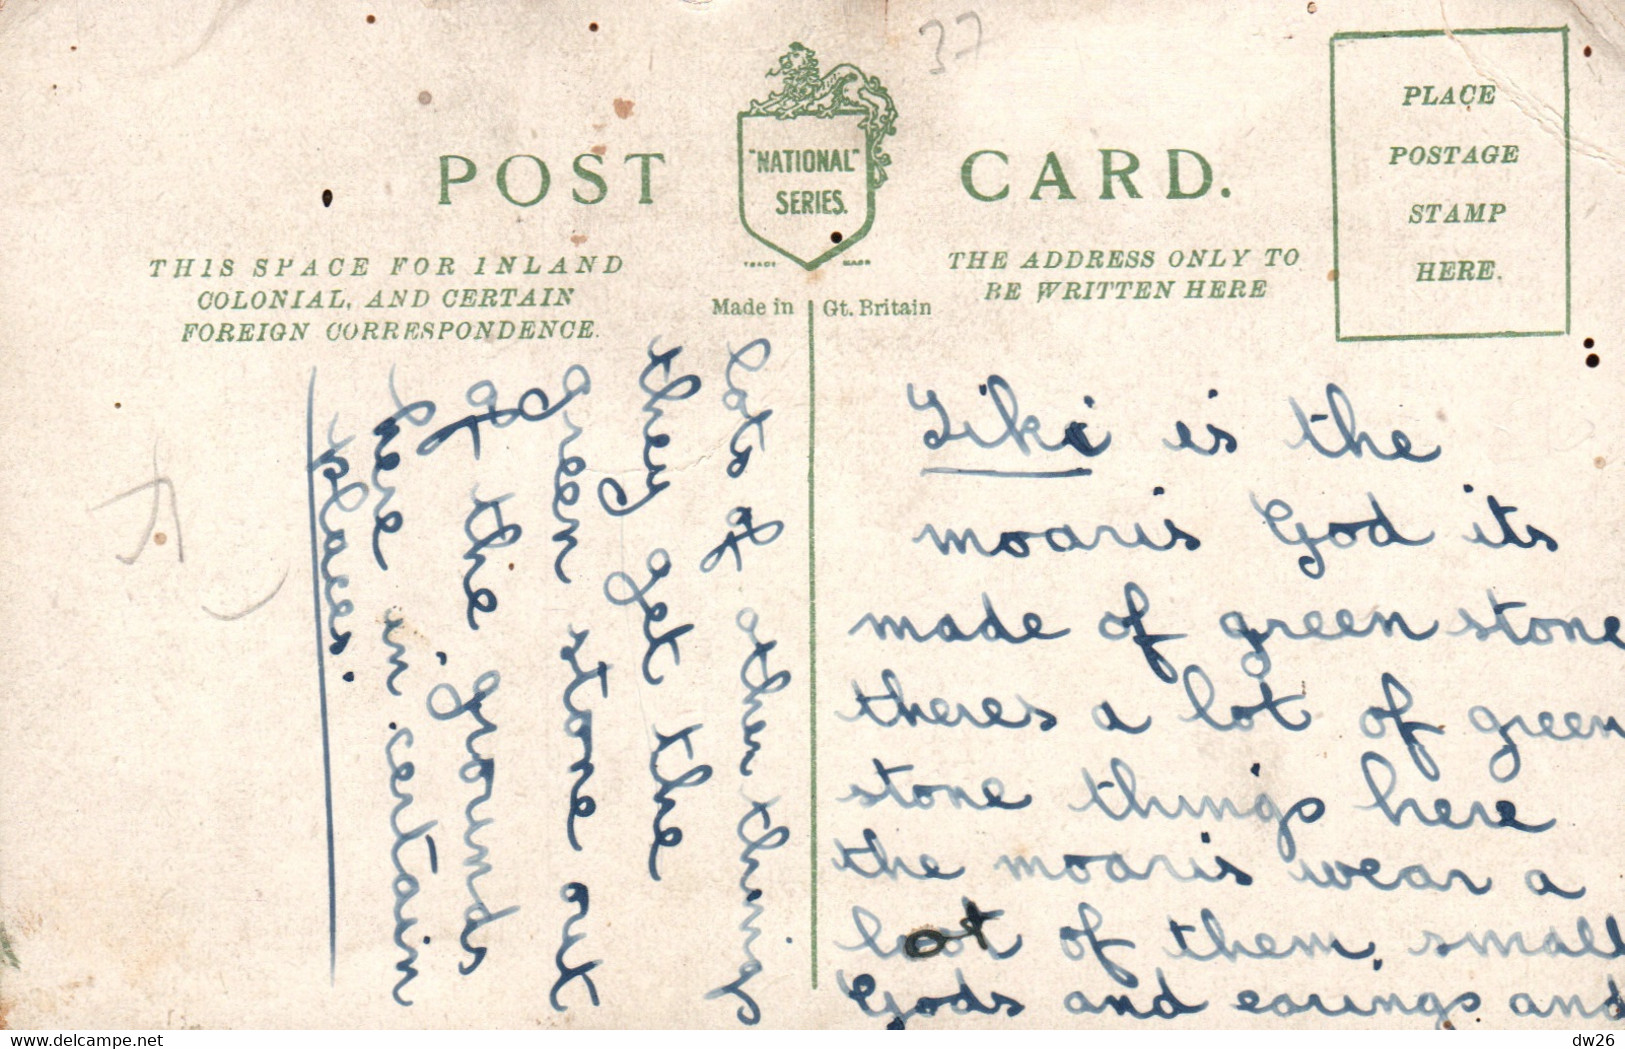 37
POST CARD.
"NATIONAL"
SERIES.
TRADE MARK
PLACE
POSTAGE
STAMP
HERE.
THIS SPACE FOR INLAND
COLONIAL, AND CERTAIN
FOREIGN CORRESPONDENCE.
THE ADDRESS ONLY TO
BE WRITTEN HERE
Made in Gt. Britain
Tiki is the
moaris God its
made of green stone
theres a lot of green
stone things here
the moaris wear a
lot of them, small
Gods and earings and
lots of other things
they get the
green stone out
of the grounds
here in certain
places.
delcampe.net
dw26